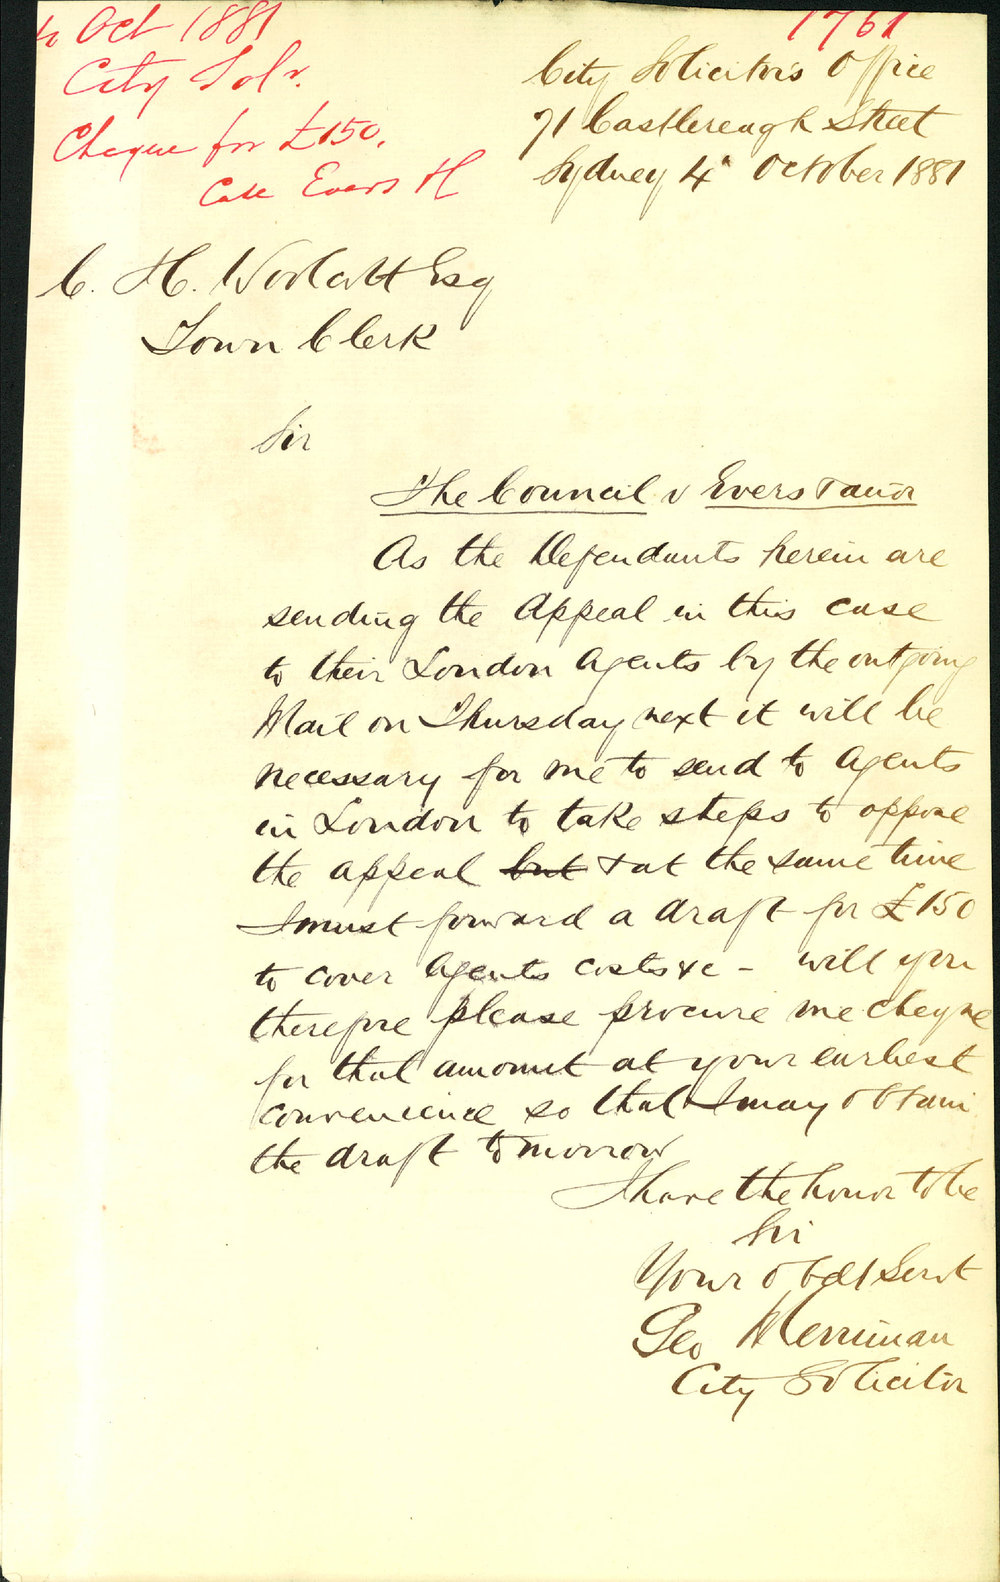 Oct 1881
1761
City Solr.
Cheque for £150.
Case Evers
City Solicitor's Office
71 Castlereagh Street
Sydney 4th October 1881
C. H. Woolcott Esq
Town Clerk
Sir
The Council v Evers & anor
As the Defendants herein are
sending the Appeal in this case
to their London Agents by the outgoing
Mail on Thursday next it will be
necessary for me to send to Agents
in London to take steps to oppose
the appeal but & at the same time
I must forward a draft for £150
to cover Agents costs &c - will you
therefore please procure me cheque
for that amount at your earliest
convenience so that I may obtain
the draft tomorrow
I have the honor to be
Sir
Your obedt Servt
Geo Merriman
City Solicitor